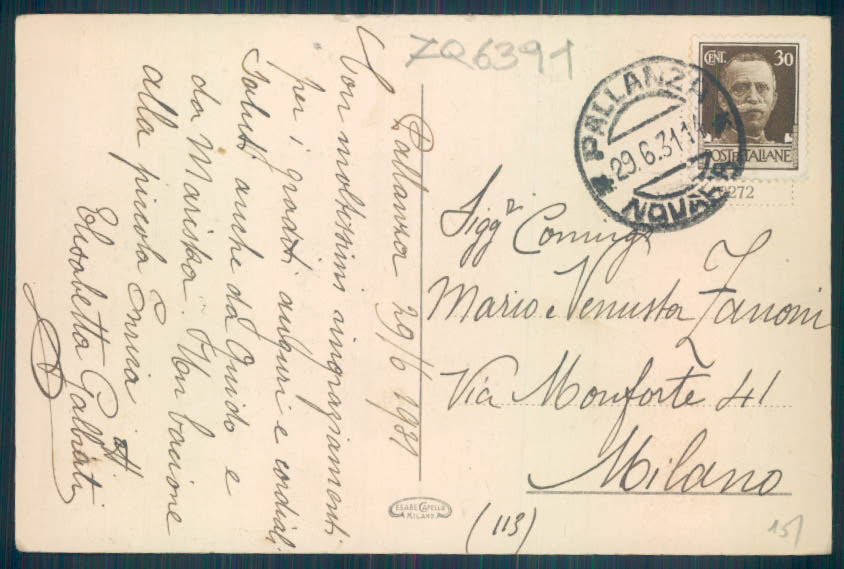 ZQ6391
Pallanza 29/6 1931
Con moltissimi ringraziamenti
per i graditi auguri e cordiali
saluti anche da Guido e
da Mariska. Un bacione
alla piccola Enrica
Elisabetta Galbiati
CENT. 30
POSTE ITALIANE
PALLANZA
29.6.31.11
NOVARA
272
Sigg.ri Coniugi
Mario e Venusta Zanoni
Via Monforte 41
Milano
CESARE CAPELLO
MILANO
(113)
15/